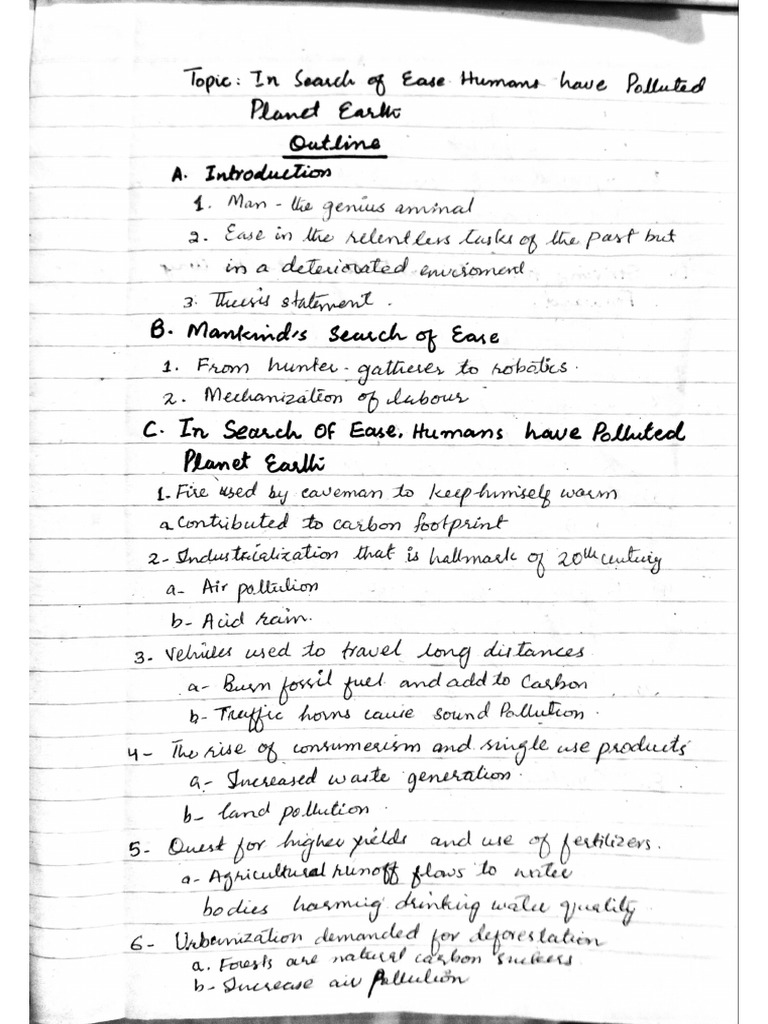 Topic: In Search of Ease Humans have Polluted
Planet Earth
Outline
A. Introduction
1. Man - the genius aminal
2. Ease in the relentless tasks of the past but
in a deteriorated enviroment
3. Thesis statement.
B. Mankind's Search of Ease
1. From hunter-gatherer to robotics.
2. Mechanization of labour
C. In Search Of Ease, Humans have Polluted
Planet Earth
1- Fire used by caveman to keep himself warm
a Contributed to carbon footprint
2- Industrialization that is hallmark of 20th century
a- Air pollution
b- Acid rain.
3- Vehicles used to travel long distances
a- Burn fossil fuel and add to Carbon
b- Traffic horns cause sound Pollution.
4- The rise of consumerism and single use products
a- Increased waste generation.
b- land pollution.
5- Quest for higher yields and use of fertilizers.
a- Agricultural runoff flows to water
bodies harming drinking water quality
6- Urbanization demanded for deforestation
a. Forests are natural carbon suckers
b- Increase air Pollution